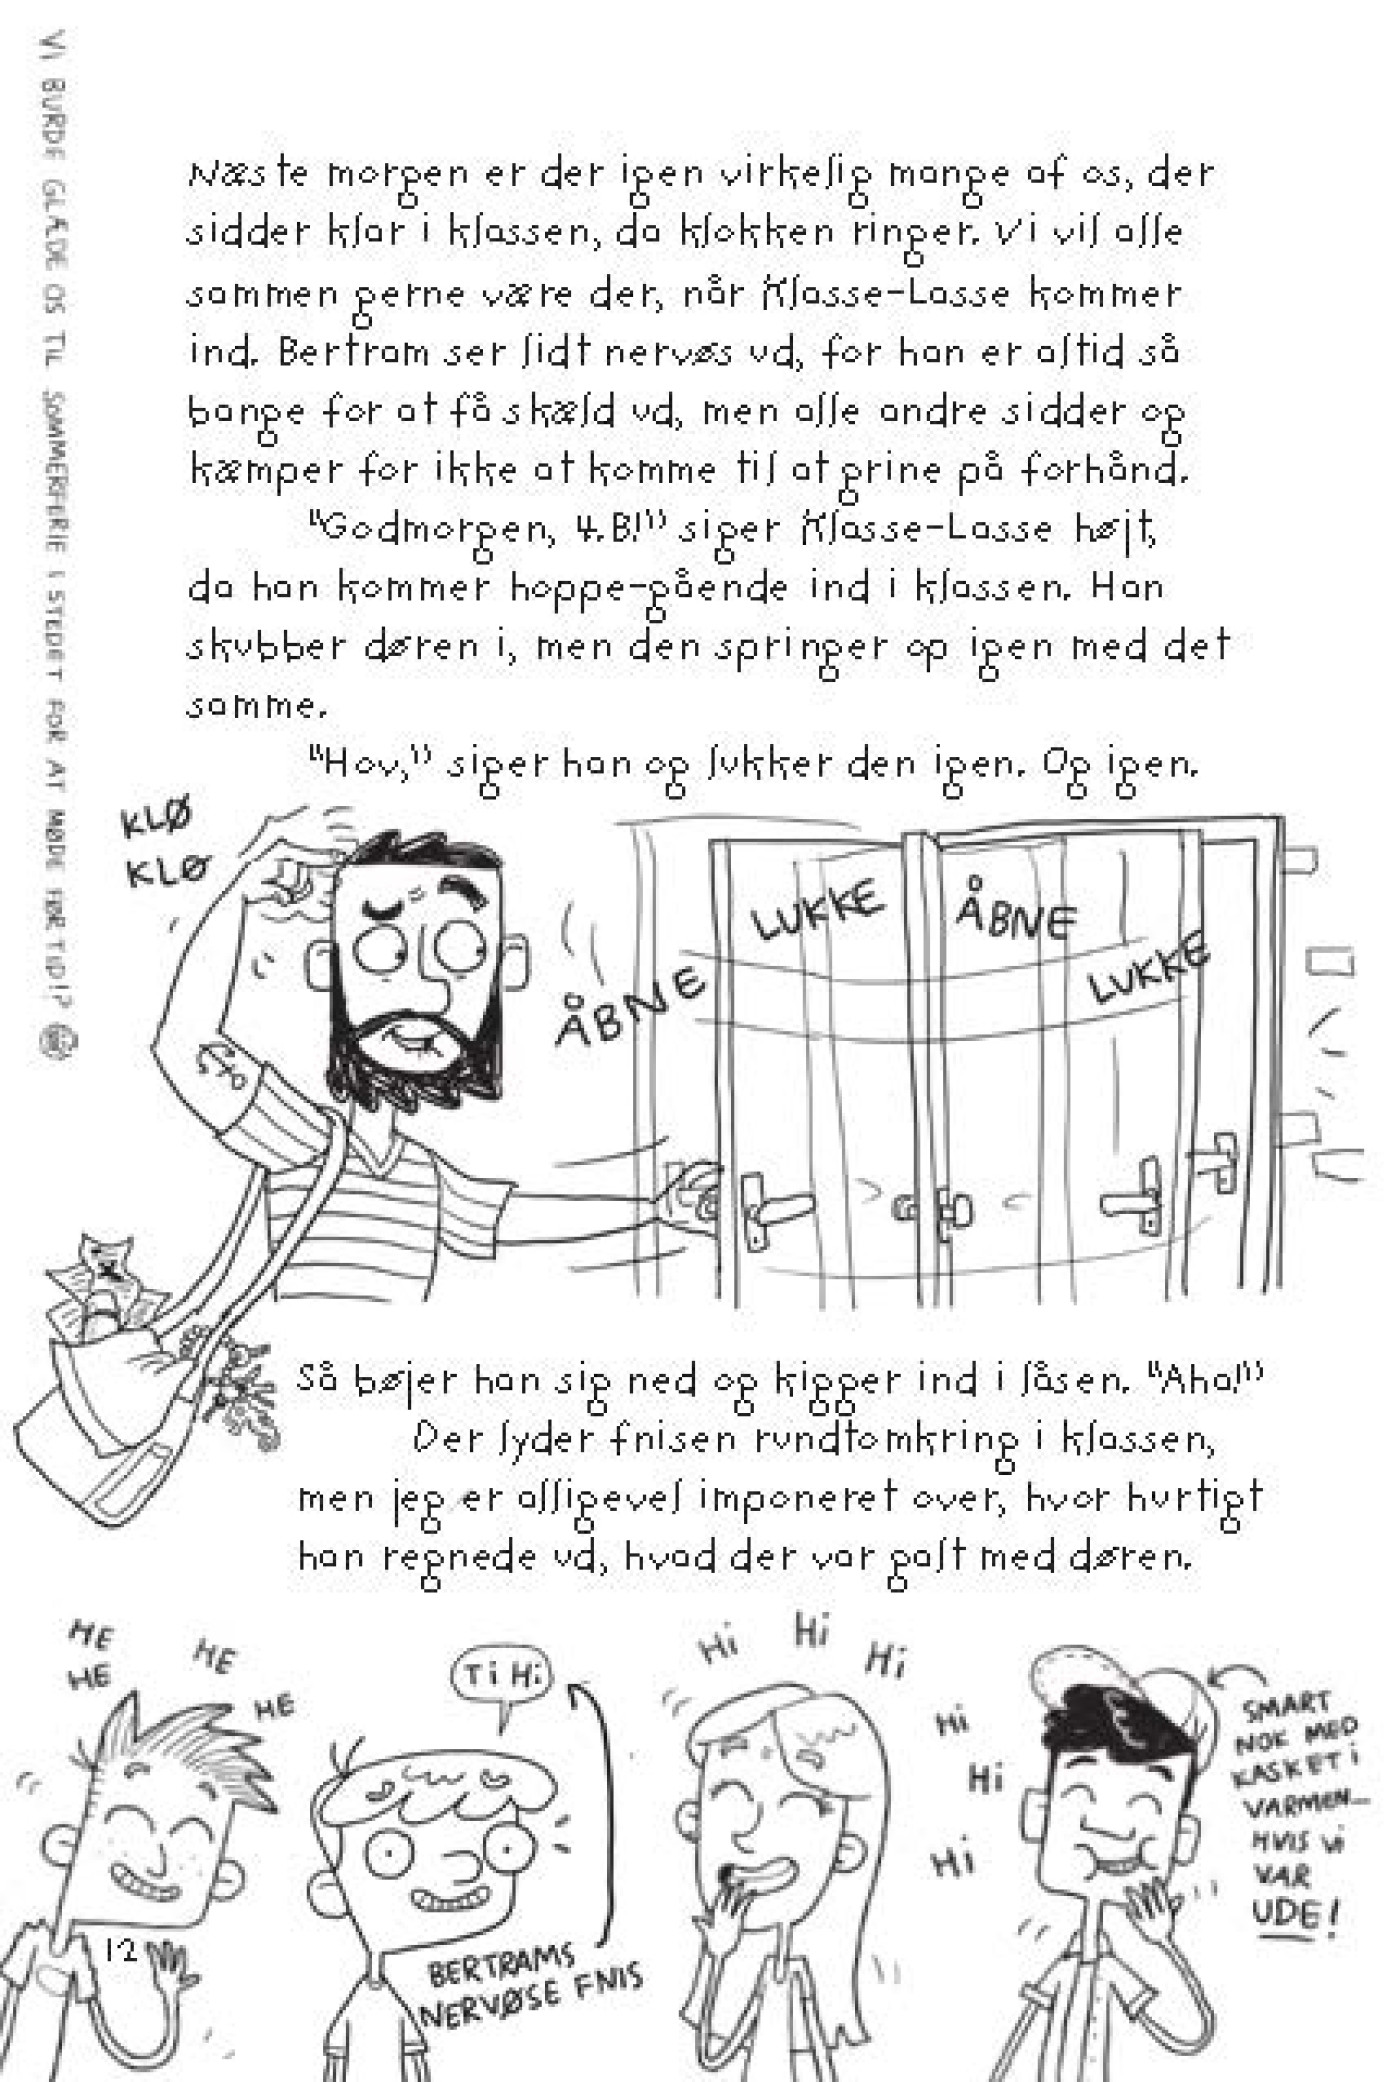 VI BURDE GLÆDE OS TIL SOMMERFERIE I STEDET FOR AT MØDE FØR TID!?
Næste morgen er der igen virkelig mange af os, der
sidder klar i klassen, da klokken ringer. Vi vil alle
sammen gerne være der, når Klasse-Lasse kommer
ind. Bertram ser lidt nervøs ud, for han er altid så
bange for at få skæld ud, men alle andre sidder og
kæmper for ikke at komme til at grine på forhånd.
"Godmorgen, 4.B!" siger Klasse-Lasse højt,
da han kommer hoppe-gående ind i klassen. Han
skubber døren i, men den springer op igen med det
samme.
"Hov," siger han og lukker den igen. Og igen.
KLØ
KLØ
ÅBNE
LUKKE
ÅBNE
LUKKE
Så bøjer han sig ned og kigger ind i låsen. "Aha!"
Der lyder fnisen rundtomkring i klassen,
men jeg er alligevel imponeret over, hvor hurtigt
han regnede ud, hvad der var galt med døren.
HE
HE
HE
HE
Ti Hi
BERTRAMS
NERVØSE FNIS
Hi
Hi
Hi
Hi
Hi
Hi
SMART
NOK MED
KASKET i
VARMEN...
HVIS Vi
VAR
UDE!
12